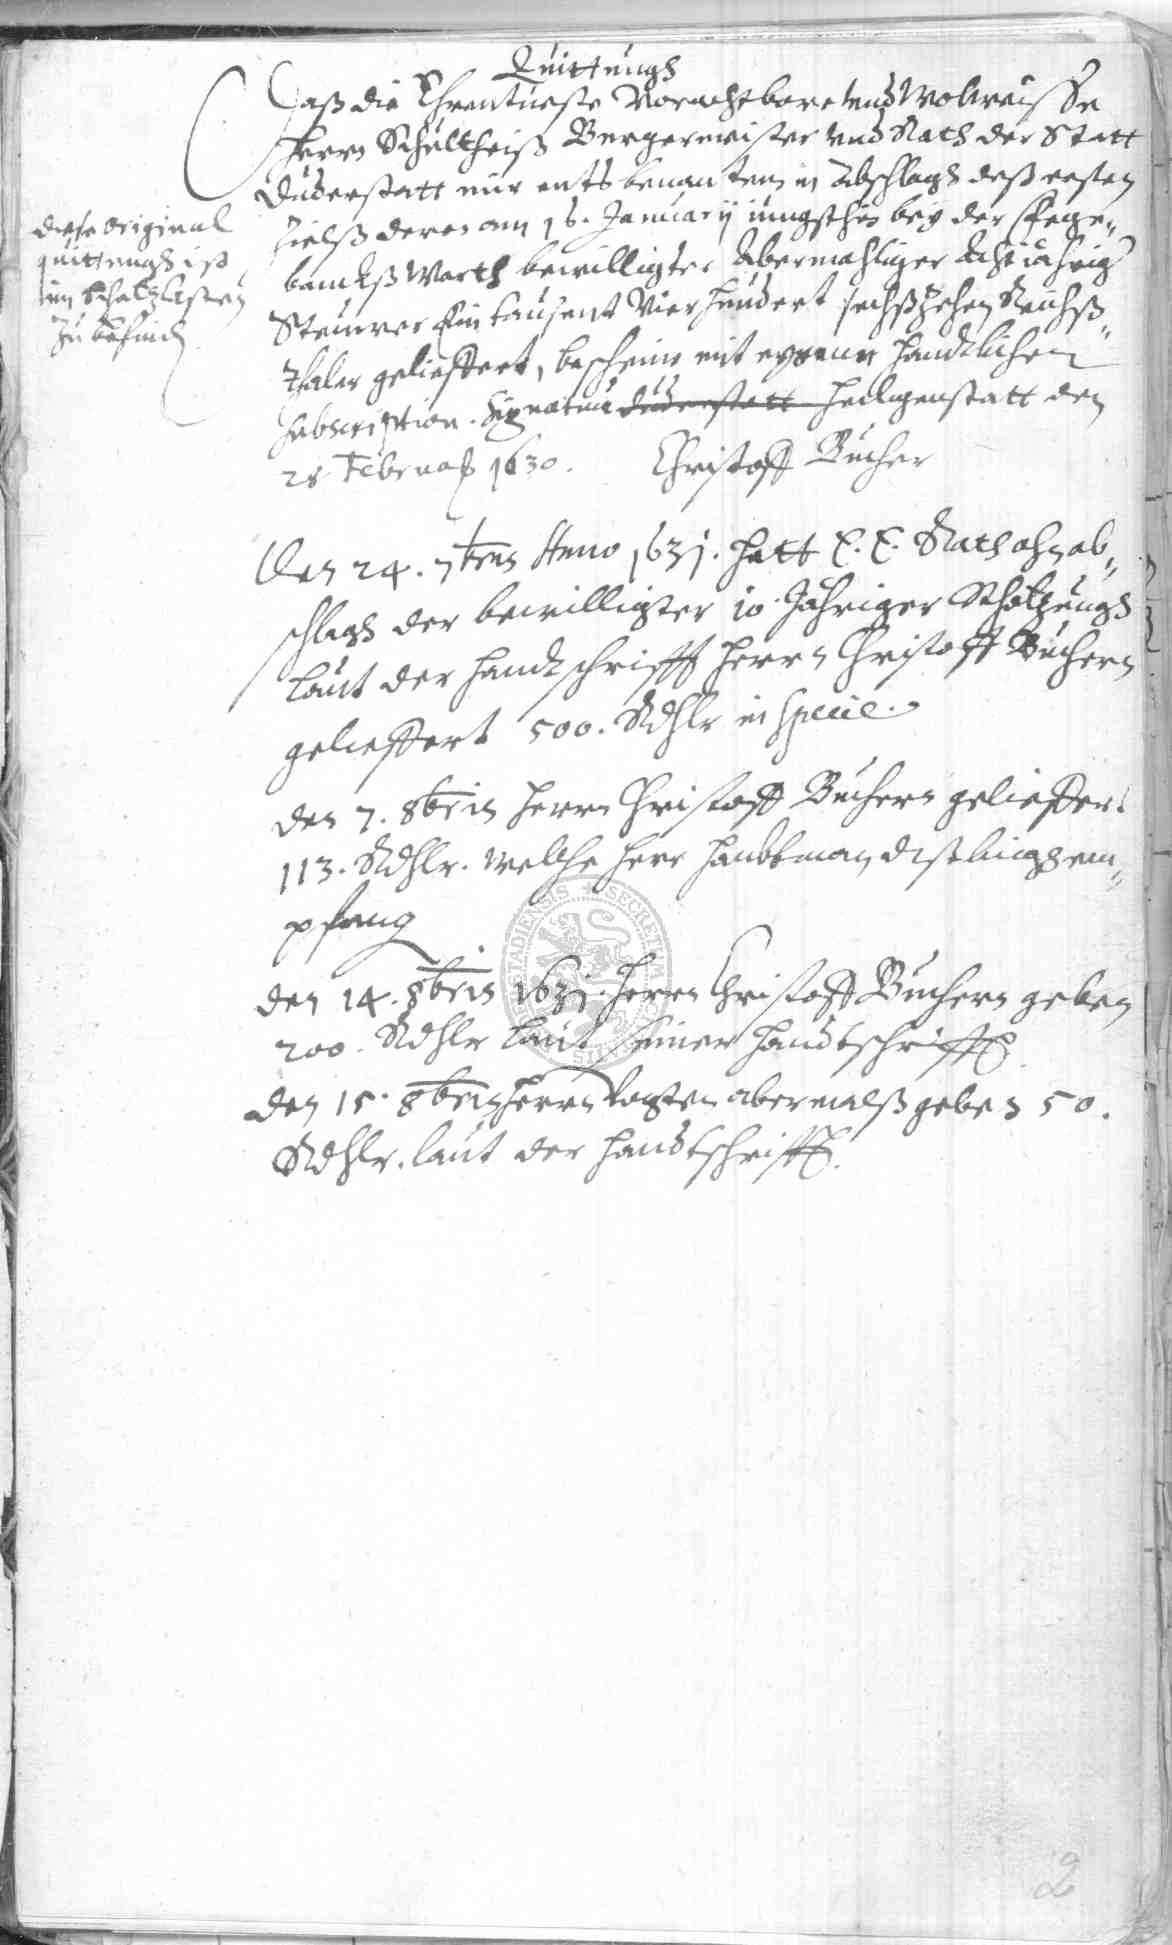 Quittungh
Daß die Ehrentueste Vorachtbare vnd Wolweisse
Herrn Schultheiß Bürgermeister vnd Rath der Statt
Duderstatt mir ents benanten in Abschlagh deß ersten
Zielß deren am 16. January jungsthin bey der Stege„
bancks Warth bewilligter Abermahliger Acht jährig
Steuwer Ein tausent Vier hundert sechßzehen Reichß„
thaler geliefftert, bescheine mit eygener handtlichen
subscription. Signatum Duderstatt Heiligenstatt den
28 Februar 1630. Christoff Bucher
diese original
quittungh ist
im Schatzkasten
zu befinden
Den 24. 7bris Anno 1631. hatt E. E. Rath ahn ab„
schlagh der bewilligter 10 Jähriger Schatzungh
laut der handtschrifft herrn Christoff Buchern
gelieffert 500. Rthlr in specie.
den 7. 8bris herrn Christoff Buchern gelieffert
113. Rthlr. welche herr Haubtman em„
pfang
den 14. 8bris 1631. herrn Christoff Buchern geben
200. Rthlr laut seiner handtschrifft
den 15. 8bris herrn Vogten abermalß geben 50.
Rthlr. laut der handtschrifft.
2